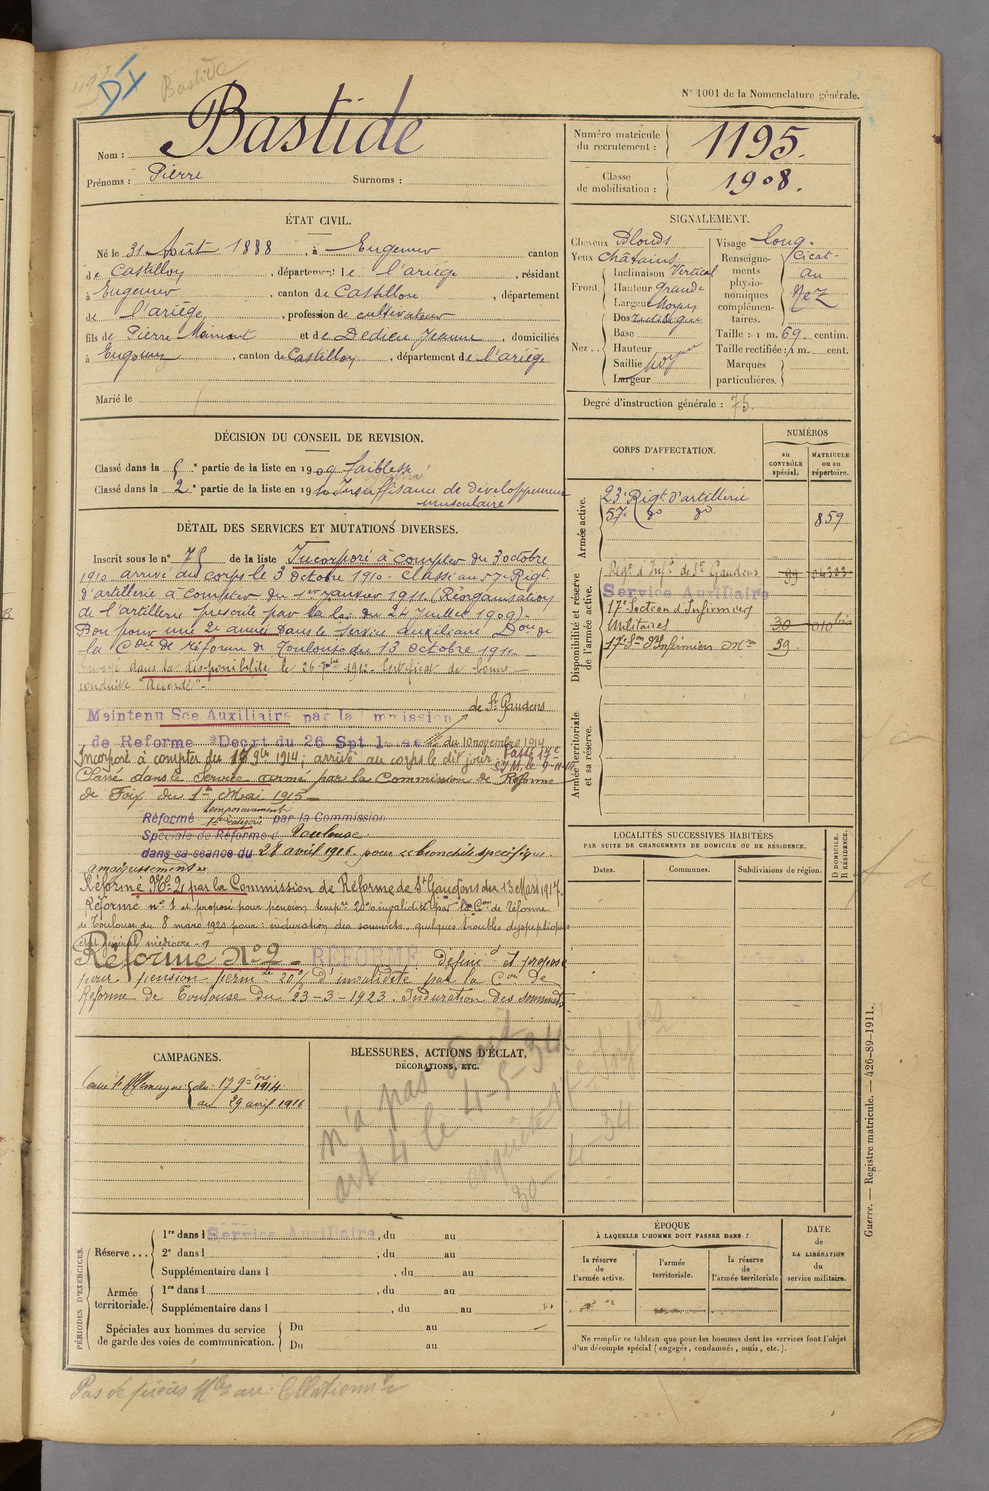 Bastide
N° 1001 de la Nomenclature générale.
Nom : Bastide
Prénoms : Pierre Surnoms :
Numéro matricule du recrutement : 1195.
Classe de mobilisation : 1908.
ÉTAT CIVIL.
Né le 31 Août 1888, à Eugomer canton
de Castillon, département de l'ariège, résidant
à Eugomer, canton de Castillon, département
de l'ariège, profession de cultivateur
fils de Pierre et de Dedieu Jeanne, domiciliés
à Engomer, canton de Castillon, département de l'ariège
Marié le
SIGNALEMENT.
Cheveux Blonds
Yeux châtains
Front Inclinaison Vertical
Hauteur Grande
Largeur Moyen
Nez Dos rectiligne
Base
Hauteur
Saillie Moyen
Largeur
Visage long.
Renseignements physionomiques complémentaires. Cicat- au Nez
Taille : 1 m. 69 centim.
Taille rectifiée : 1 m. cent.
Marques particulières.
Degré d'instruction générale : 3.
DÉCISION DU CONSEIL DE REVISION.
Classé dans la 5e partie de la liste en 1909 faiblesse
Classé dans la 2e partie de la liste en 1910 Insuffisance de développement
musculaire
DÉTAIL DES SERVICES ET MUTATIONS DIVERSES.
Inscrit sous le n° 75 de la liste Incorporé à compter du 3 octobre
1910 arrivé au corps le 3 octobre 1910. Classé au 57e Régt
d'artillerie à compter du 1er Janvier 1911 (Réorganisation
de l'artillerie prescrite par la loi du 24 Juillet 1909)-
Bon pour une 2e année dans le service auxiliaire Don de
la Con de Réforme de Toulouse du 13 octobre 1911
Envoyé dans la disponibilité le 26 7bre 1912. Certificat de bonne
conduite "Accordé".
de St Gaudens
Maintenu Sce Auxiliaire par la Commission
de Réforme Décrt du 26 Spt 1914 du 10 novembre 1914
Incorporé à compter du 17 9bre 1914; arrivé au corps le dit jour. Passé 17e
S.I.M. le 9-11-14
Classé dans le Service armé par la Commission de Réforme
de Foix du 1er Mai 1915
Réformé temporairement 1re catégorie par la Commission
Spéciale de Réforme de Toulouse
dans sa séance du 28 avril 1916. pour "bronchite spécifique.
amaigrissement"
Réformé N° 2 par la Commission de Réforme de St Gaudens du 13 Mars 1917.
Réformé n° 1 et proposé pour pension tempre 20% invalidité par la Con de Réforme
de Toulouse du 8 mars 1920 pour : induration des sommets, quelques troubles dyspeptiques
état général médiocre
Réforme N° 2 - RÉFORMÉ définif et proposé
pour pension permte 20% d'invalidité par la Con De
Réforme de Toulouse du 23-3-1923. Induration des sommets
CORPS D'AFFECTATION.
NUMÉROS
au CONTRÔLE spécial.
MATRICULE ou au répertoire.
Armée active.
23e Régt d'artillerie
57e do do 859
Disponibilité et réserve de l'armée active.
Régt d'Infie de St Gaudens
Service Auxiliaire
17e Section d'Infirmiers
Militaires 30 010 bis
17e Son d'Infirmiers Mres 39
Armée territoriale et sa réserve.
LOCALITÉS SUCCESSIVES HABITÉES
PAR SUITE DE CHANGEMENTS DE DOMICILE OU DE RÉSIDENCE.
Dates. Communes. Subdivisions de région.
D DOMICILE. R RÉSIDENCE.
CAMPAGNES.
Contre l'Allemagne du 17 9bre 1914
au 29 avril 1916
BLESSURES, ACTIONS D'ÉCLAT,
DÉCORATIONS, ETC.
n'a pas droit
art 4 le 4-5-34
enquête
30-4-34
PÉRIODES D'EXERCICES.
Réserve... 1re dans l Service Auxiliaire, du au
2e dans l, du au
Supplémentaire dans l, du au
Armée territoriale. 1re dans l, du au
Supplémentaire dans l, du au
Spéciales aux hommes du service de garde des voies de communication. Du au
Du au
ÉPOQUE
À LAQUELLE L'HOMME DOIT PASSER DANS :
la réserve de l'armée active.
l'armée territoriale.
la réserve de l'armée territoriale
DATE DE LA LIBÉRATION du service militaire.
Ne remplir ce tableau que pour les hommes dont les services font l'objet
d'un décompte spécial (engagés, condamnés, omis, etc.).
Guerre. — Registre matricule. — 426-89-1911.
Pas de pièces